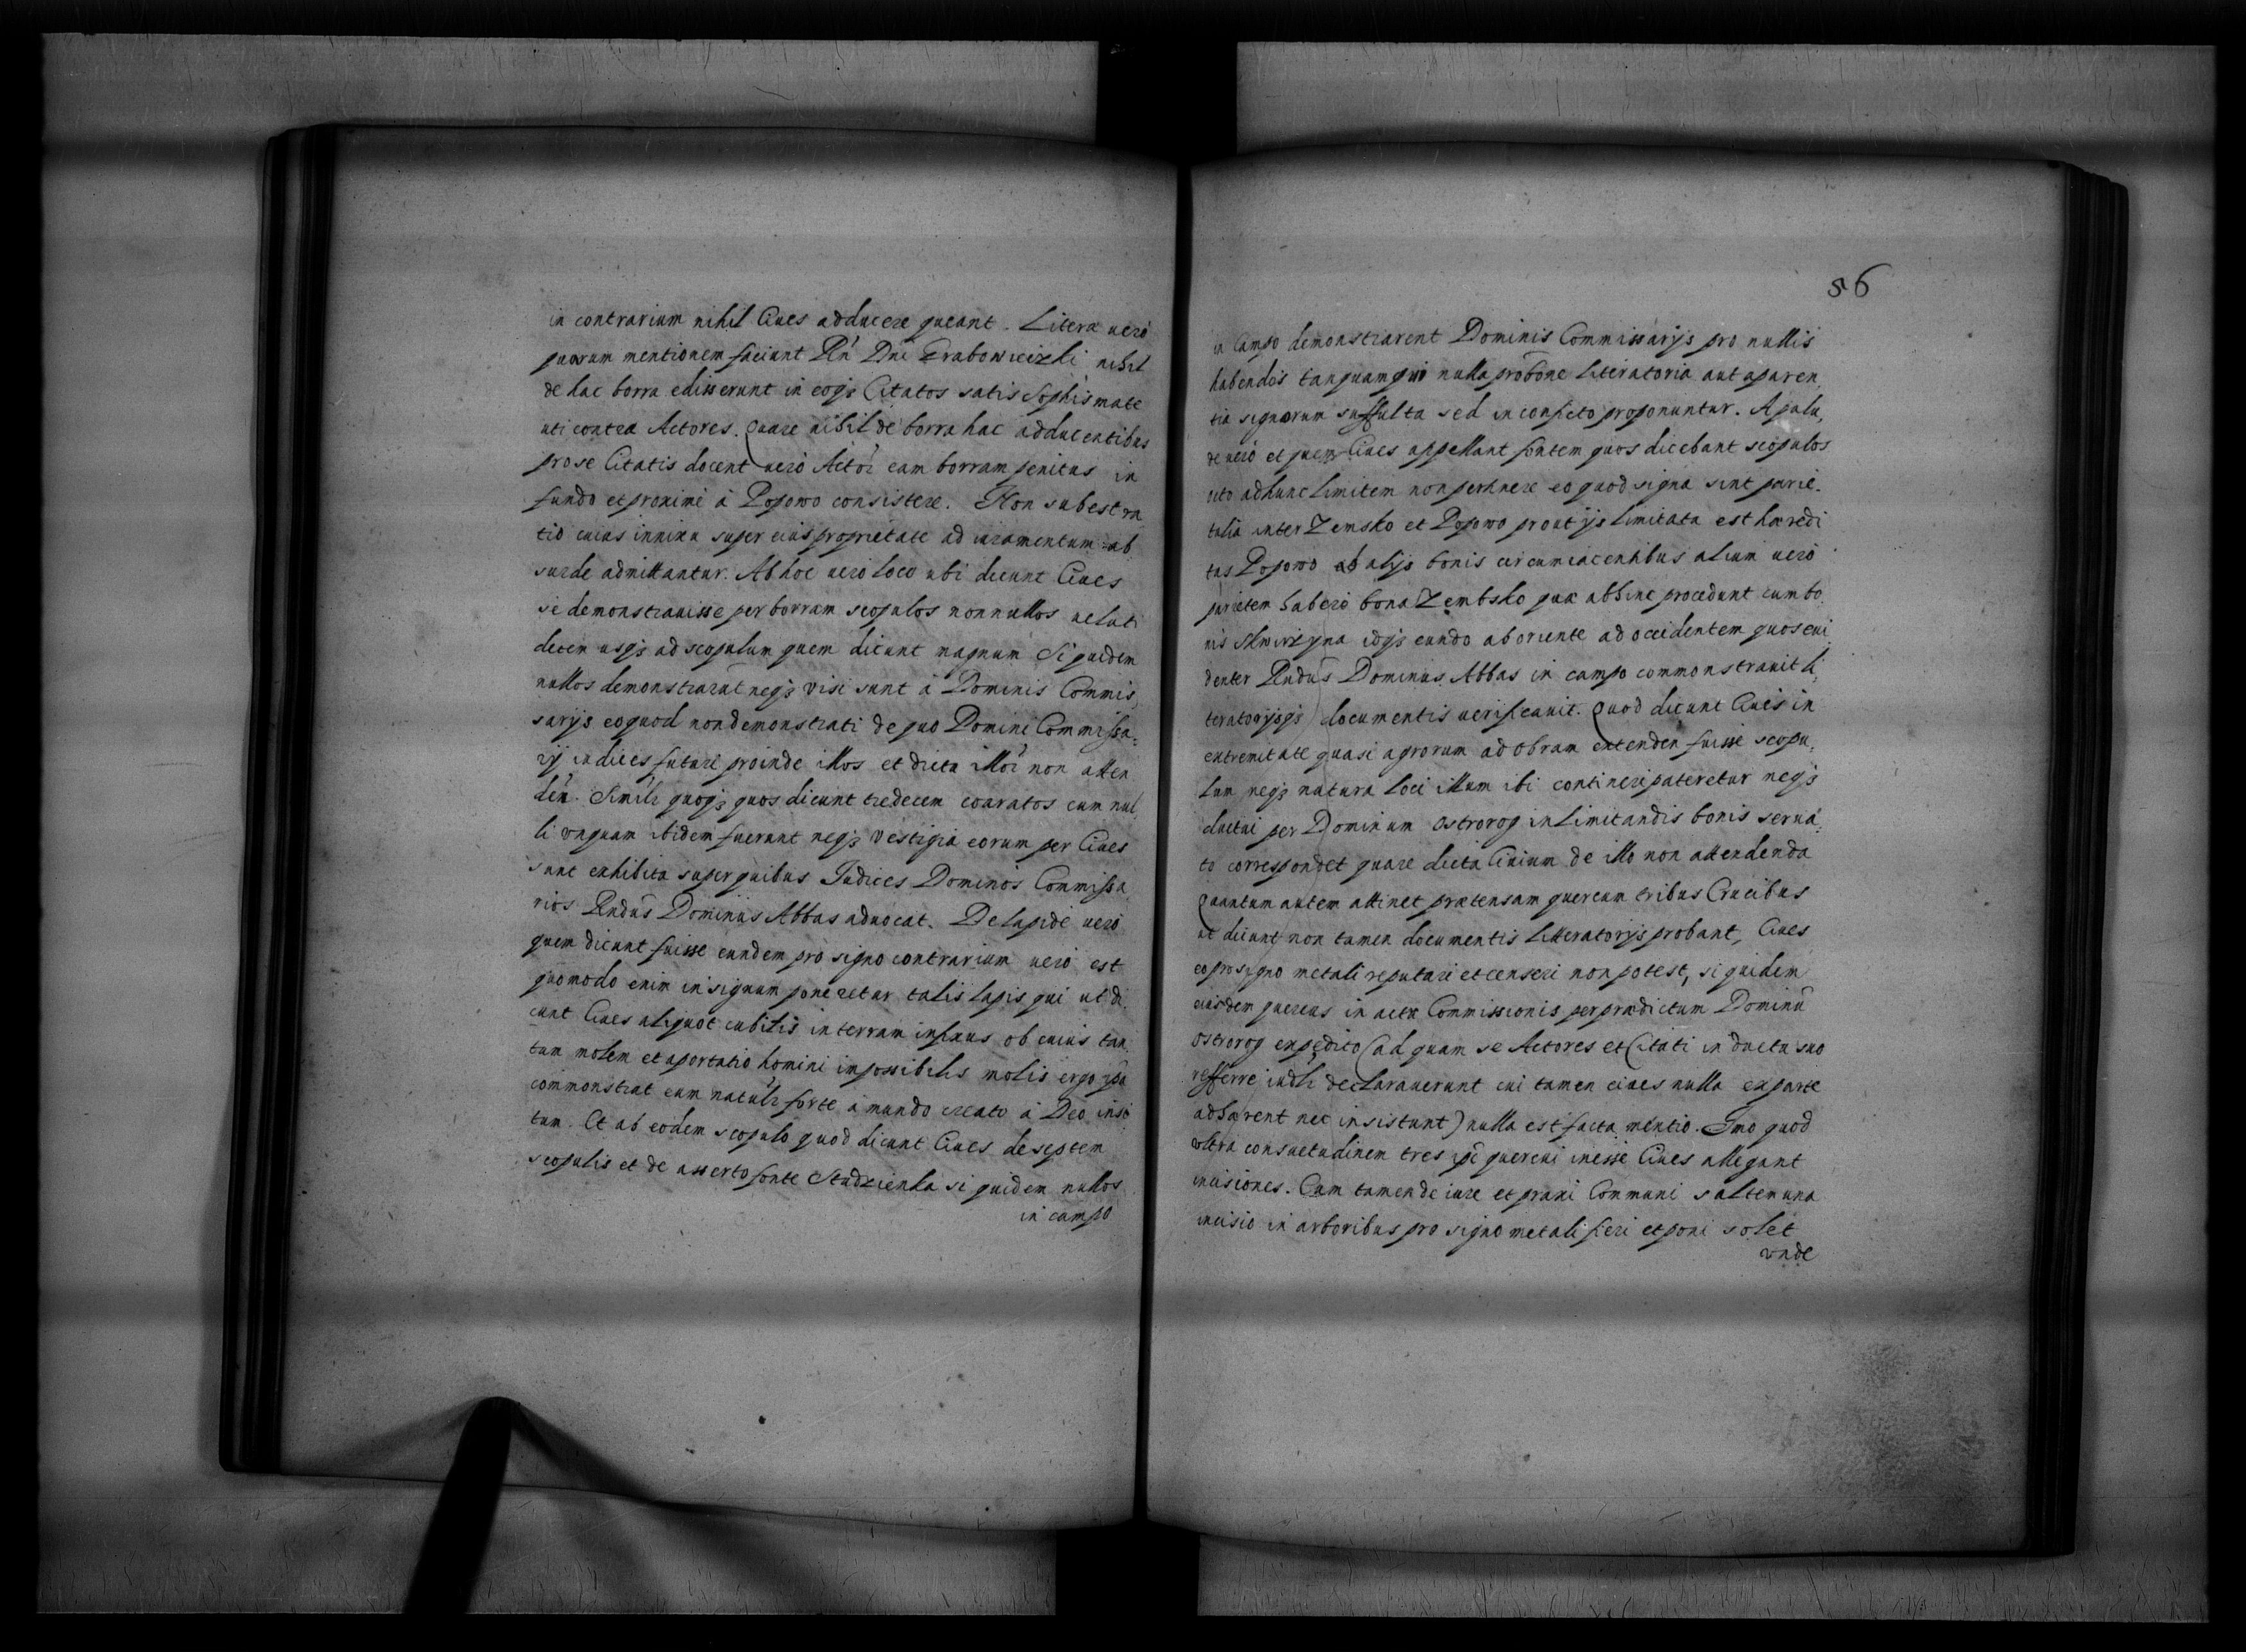 in contrarium nihil Ciues adducere queant. Litera uero
quarum mentionem faciunt Rn Dni Grabowieizki nihil
de hac borra edisserunt in eoqs Citatos satis Sophismate
uti contra Actores. Quare nihil de borra hac adducentibus
pro se Citatis docent uero Actor eam borram penitus in
fundo et proximi à Popowo consistere. Non subest ra
tio cuius innixa super eius proprietate ad iuramentum ab
surde admittantur. Ab hoc uero loco ubi dicunt Ciues
se demonstrauisse per borram scopulos nonnullos ueluti
decem usqs ad scopulum quem dicunt magnum Siquidem
nullos demonstrarut neqs visi sunt à Dominis Commis
sarijs eo quod non demonstrati de quo Domini Commissa,
rij indices future proinde illos et dicta illor non atten
den. Simili quoqs quos dicunt tredecem coaratos cum nul
li vnquam ibidem fuerunt neqs vestigia eorum per Ciues
sunt exhibita super quibus Iudices Dominos Commissa
rios Rndus Dominus Abbas aduocat. De lapide uero
quem dicunt fuisse eundem pro signo contrarium uero est
quomodo enim in signum poneretur talis lapis qui ut di
cunt Ciues aliquot cubitis in terram infixus ob cuius tan
tam molem et aportatio homini impossibilis molis ergo ipsa
commonstrat eum natulr forte à mundo creato à Deo insi
tum. Et ab eodem scopulo quod dicunt Ciues de septem
scopulis et de asserto fonte Studzienka siquidem nullos
in campo
56
in Campo demonstrarent Dominis Commissarijs pro nullis
habendos tanquam qui nulla probone Literatoria aut aparen
tia signorum suffulta sed in conficto proponuntur. A palu,
de uero et quem Ciues appellant fontem quos dicebant scopulos
octo ad hunc limitem non pertinere eo quod signa sint parie,
talia inter Zemsko et Popowo prout ijs limitata est hæredi
tas Popowo ab alijs bonis circumiacentibus alium uero
parietem habero bona Zembsko quæ abhinc procedunt cum bo
nis Skwirzyna idqs eundo ab oriente ad occidentem quos eui
denter Rndus Dominus Abbas in campo commonstrauit li,
teratorijsqs documentis uerificauit. Quod dicunt Ciues in
extremitate quasi agrorum ad Obram extenden fuisse scopu,
lum neqs natura loci illum ibi contineri pateretur neqs
ductui per Dominum Ostrorog in limitandis bonis serua,
to correspondet quare dicta Ciuium de illo non attendenda
Quantum autem attinet prætensam quercum tribus Crucibus
ut dicunt non tamen documentis Litteratorijs probant, Ciues
eo pro signo metali reputari et censeri non potest, siquidem
eiusdem quercus in acta Commissionis per prædictum Dominu
Ostrorog expedito (ad quam se Actores et Citati in ductu suo
refferre iudlr declarauerunt cui tamen ciues nulla ex parte
adhærent nec insistunt) nulla est facta mentio. Imo quod
vltra consuetudinem tres ipi quercui inesse Ciues allegant
incisiones. Cum tamen de iure et praxi Communi saltem una
incisio in arboribus pro signo metali fieri et poni solet
vnde